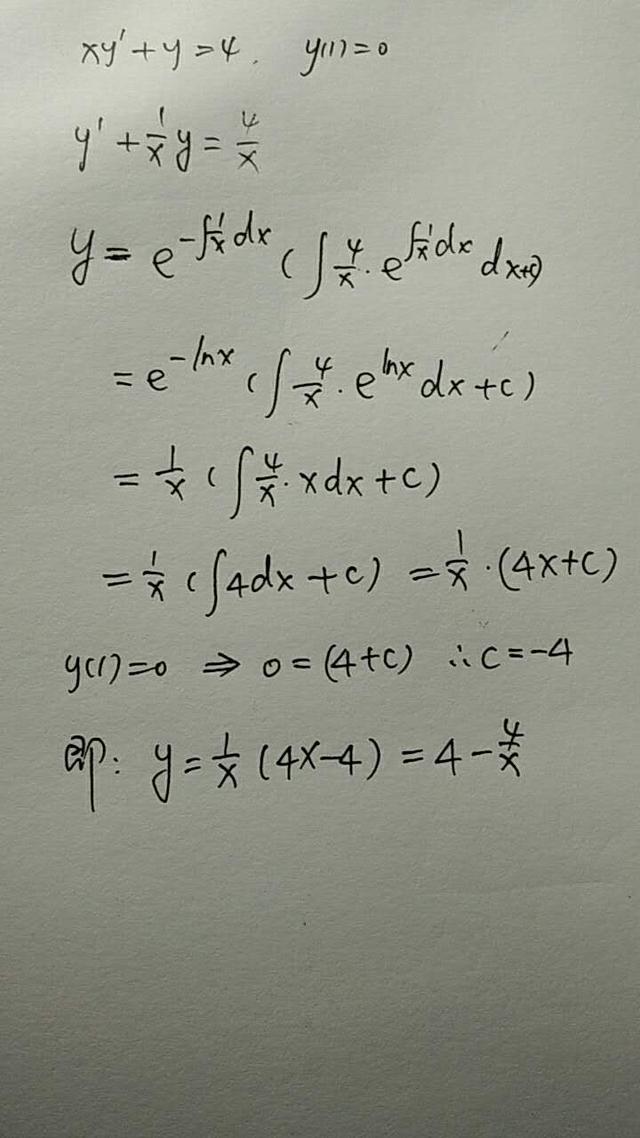 xy' + y = 4 , y(1) = 0
y' + 1/x y = 4/x
y = e^{-∫1/x dx} (∫ 4/x · e^{∫1/x dx} dx+c)
= e^{-lnx} (∫ 4/x · e^{lnx} dx + c)
= 1/x (∫ 4/x · x dx + c)
= 1/x (∫ 4dx + c) = 1/x · (4x+c)
y(1)=0 ⇒ 0 = (4+c) ∴ c = -4
即: y = 1/x (4x-4) = 4 - 4/x